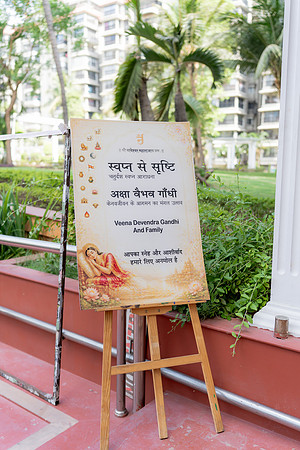 स्वप्न से सृष्टि
चतुर्दश स्वप्न आराधना
अक्षा वैभव गाँधी
केवलजीवन के आगमन का मंगल उत्सव
Veena Devendra Gandhi
And Family
आपका स्नेह और आशीर्वाद
हमारे लिए अनमोल है